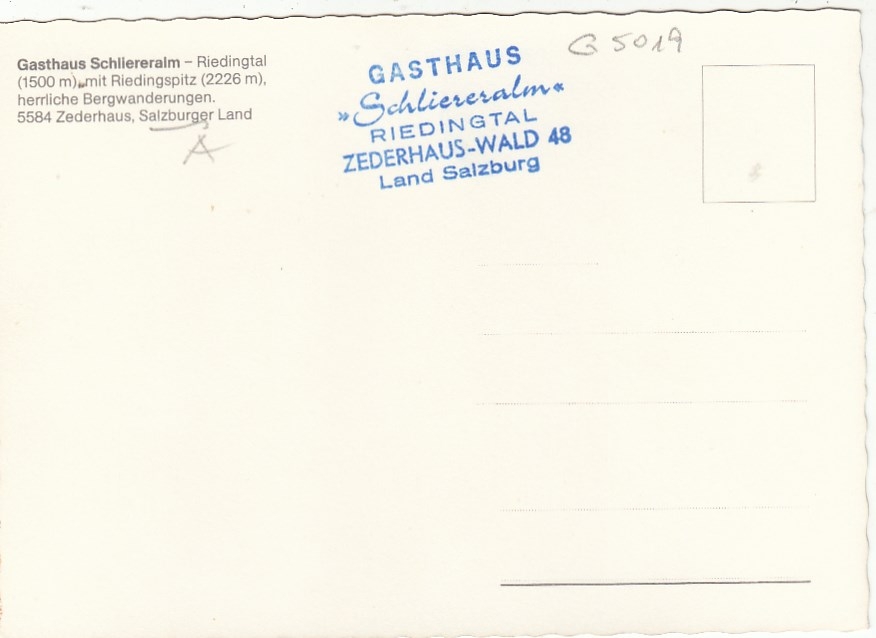 Gasthaus Schliereralm – Riedingtal
(1500 m), mit Riedingspitz (2226 m),
herrliche Bergwanderungen.
5584 Zederhaus, Salzburger Land
A
GASTHAUS
»Schliereralm«
RIEDINGTAL
ZEDERHAUS-WALD 48
Land Salzburg
G 5019